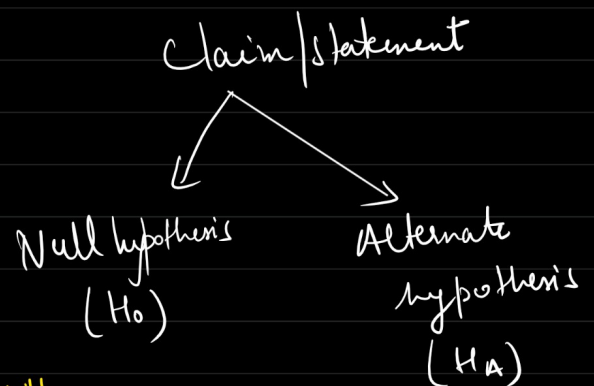 Claim/statement
Null hypothesis
(H0)
Alternate
hypothesis
(HA)